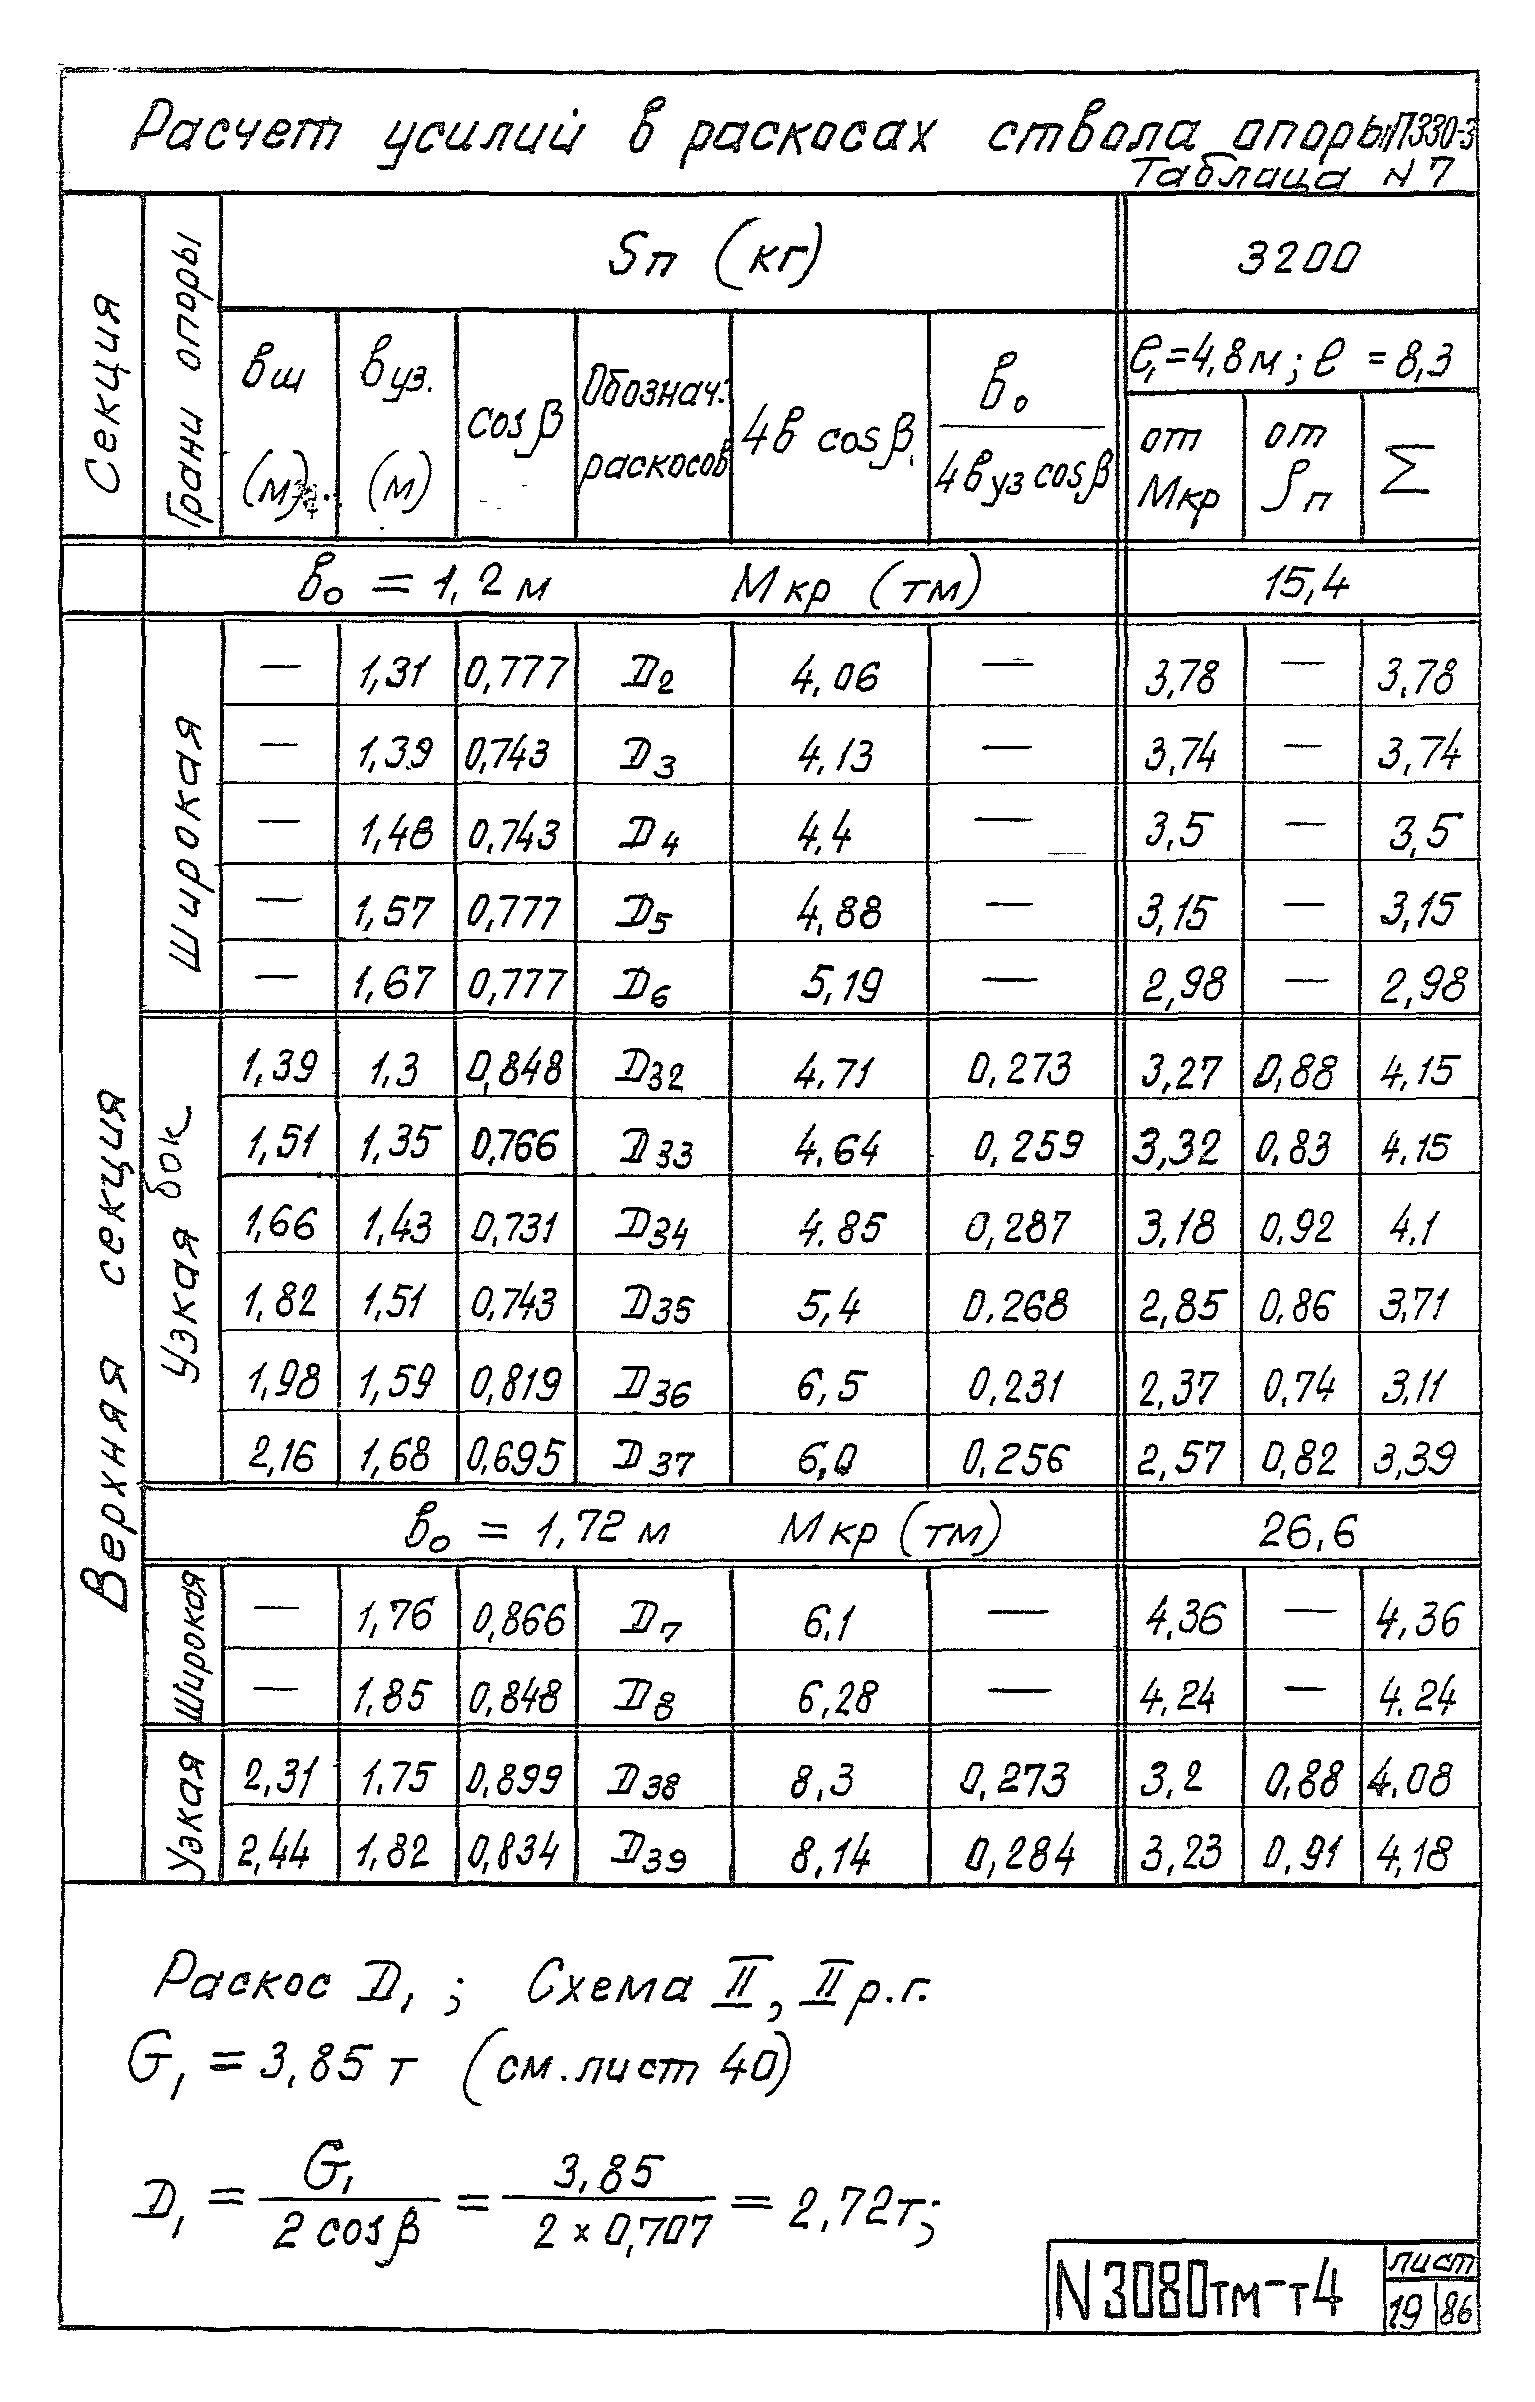 Расчет усилий в раскосах ствола опоры П330-3
Таблица N 7
Секция
Грани опоры
Sп (кг)
3200
вш (м)
вуз. (м)
cos β
Обознач. раскосов
4в cos β
в₀ / 4вуз cos β
ℓ₁ = 4,8м; ℓ = 8,3
от Мкр
от Sп
Σ
в₀ = 1,2 м Мкр (тм) 15,4
Верхняя секция
Широкая
— 1,31 0,777 D2 4,06 — 3,78 — 3,78
— 1,39 0,743 D3 4,13 — 3,74 — 3,74
— 1,48 0,743 D4 4,4 — 3,5 — 3,5
— 1,57 0,777 D5 4,88 — 3,15 — 3,15
— 1,67 0,777 D6 5,19 — 2,98 — 2,98
Узкая бок
1,39 1,3 0,848 D32 4,71 0,273 3,27 0,88 4,15
1,51 1,35 0,766 D33 4.64 0,259 3,32 0,83 4,15
1,66 1,43 0,731 D34 4.85 0,287 3,18 0,92 4,1
1,82 1,51 0,743 D35 5,4 0.268 2,85 0,86 3,71
1,98 1,59 0,819 D36 6,5 0,231 2,37 0,74 3,11
2,16 1,68 0,695 D37 6,0 0,256 2,57 0,82 3,39
в₀ = 1,72 м Мкр (тм) 26,6
Широкая
— 1,76 0,866 D7 6,1 — 4,36 — 4,36
— 1,85 0,848 D8 6,28 — 4,24 — 4.24
Узкая
2,31 1.75 0,899 D38 8,3 0,273 3,2 0,88 4,08
2,44 1,82 0,834 D39 8,14 0,284 3,23 0,91 4,18
Раскос D₁ ; Схема II, II р.г.
G₁ = 3,85 т (см. лист 40)
D₁ = G₁ / 2 cos β = 3,85 / 2 × 0,707 = 2,72т;
N3080тм-т4
лист
19 86